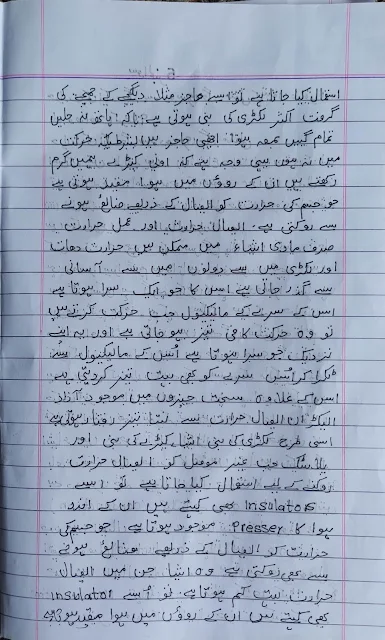 استعمال کیا جاتا ہے تو اسے حاجز مثلا دیگچے کے چمچے کی
گرفت اکثر لکڑی کی بنی ہوتی ہے تاکہ ہاتھ نہ جلیں
تمام گیس بمعہ ہوا اچھی حاجز ہیں بشرطیکہ حرکت
میں نہ ہوں یہی وجہ ہے کہ اونی کپڑے ہمیں گرم
رکھتے ہیں ان کے روؤں میں ہوا مقید ہوتی ہے
جو جسم کی حرارت کو ایصال کے ذریعے ضائع ہونے
سے روکتی ہے۔ ایصال حرارت اور عمل حرارت
صرف مادی اشیاء میں ممکن ہیں حرارت دھات
اور لکڑی میں سے دونوں میں سے آسانی
سے گذر جاتی ہے اس کا جو ایک سرا ہوتا ہے
اس کے سرے کے مالیکیول جب حرکت کرتے ہیں
تو وہ حرکت کافی تیز ہو جاتی ہے اور یہ اپنے
نزدیک جو سرا ہوتا ہے اُس کے مالیکیول سے
ٹکرا کر اُس سرے کو بھی بہت تیز کر دیتی ہے
اس کے علاوہ سخت چیزوں میں موجود آزاد
الیکٹران ایصال حرارت سے تیز رفتار ہوتی ہے
اسی طرح لکڑی کی بنی اشیاء کپڑے کی بنی اور
پلاسٹک جب غیر موصل کو ایصال حرارت
روکنے کے لیے استعمال کیا جاتا ہے تو اسے
Insulator بھی کہتے ہیں ان کے اندر
ہوا کا Presser موجود ہوتا ہے۔ جو جسم کی
حرارت کو ایصال کے ذریعے ضائع ہونے
سے بھی روکتی ہے وہ اشیا جن میں ایصال
حرارت بہت کم ہوتا ہے تو اُسے Insulator
بھی کہتے ہیں ان کے روؤں میں ہوا مقید ہوتی ہے